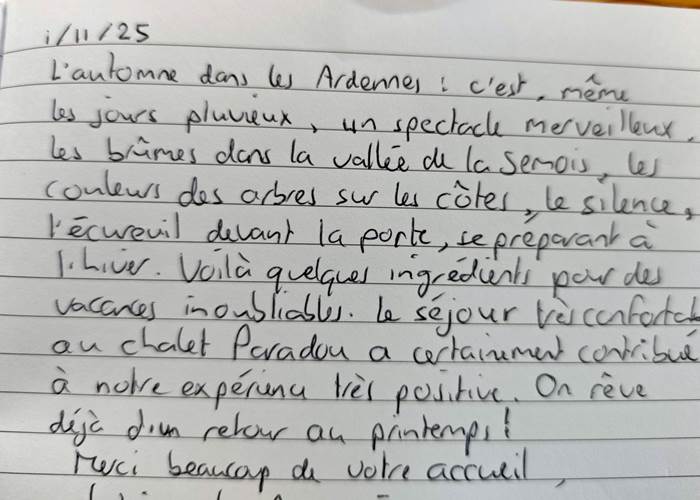 1/11/25
L'automne dans les Ardennes : c'est, même
les jours pluvieux, un spectacle merveilleux.
Les brûmes dans la vallée de la Semois, les
couleurs des arbres sur les côtes, le silence,
l'écureuil devant la porte, se préparant à
l'hiver. Voilà quelques ingrédients pour des
vacances inoubliables. Le séjour très confortab
au chalet Paradou a certainement contribué
à notre expérience très positive. On rêve
déjà d'un retour au printemps!
Merci beaucoup de votre accueil,